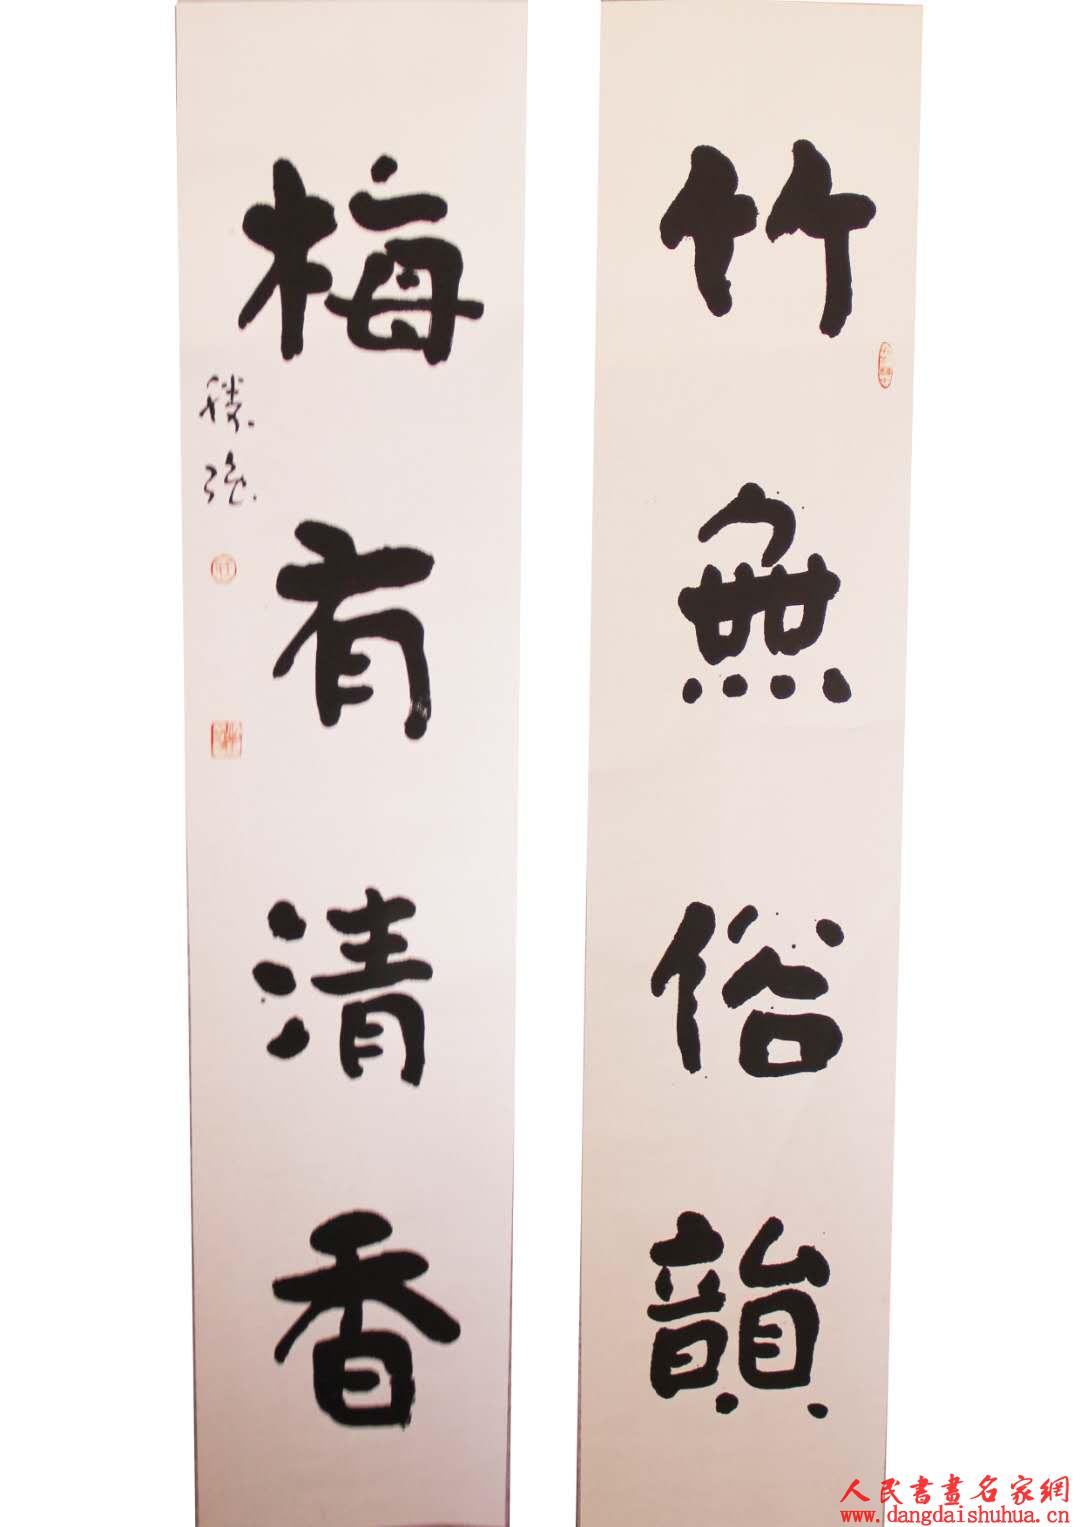 竹無俗韻
梅有清香
人民書畫名家網
www.dangdaishuhua.cn